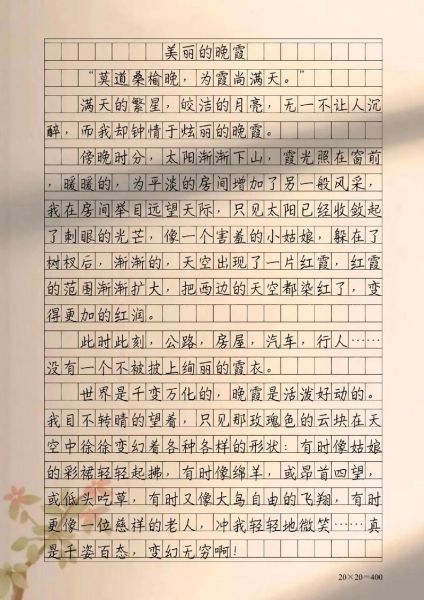 美丽的晚霞
“莫道桑榆晚，为霞尚满天。”
满天的繁星，皎洁的月亮，无一不让人沉
醉，而我却钟情于炫丽的晚霞。
傍晚时分，太阳渐渐下山，霞光照在窗前
，暖暖的，为平淡的房间增加了另一般风采，
我在房间举目远望天际，只见太阳已经收敛起
了刺眼的光芒，像一个害羞的小姑娘，躲在了
树杈后，渐渐的，天空出现了一片红霞，红霞
的范围渐渐扩大，把西边的天空都染红了，变
得更加的红润。
此时此刻，公路，房屋，汽车，行人……
没有一个不被披上绚丽的霞衣。
世界是千变万化的，晚霞是活泼好动的。
我目不转睛的望着，只见那玫瑰色的云块在天
空中徐徐变幻着各种各样的形状：有时像姑娘
的彩裙轻轻起拂，有时像绵羊，或昂首四望，
或低头吃草，有时又像大鸟自由的飞翔，有时
更像一位慈祥的老人，冲我轻轻地微笑……真
是千姿百态，变幻无穷啊！
20×20=400